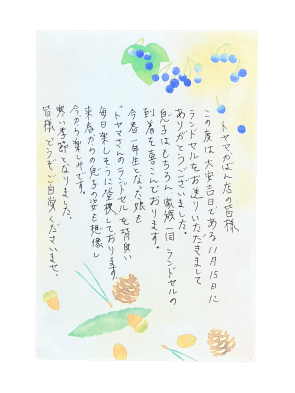 トヤマかばん店の皆様
この度は大安吉日である11月15日に
ランドセルをお送りいただきまして
ありがとうございました。
息子はもちろん、家族一同ランドセルの
到着を喜こんでおります。
今春一年生となった娘も
"トヤマさんのランドセル"を背負い
毎日楽しそうに登校しております。
来春からの息子の姿も想像し
今から楽しみです。
寒い季節となりました。
皆様どうぞご自愛くださいませ。